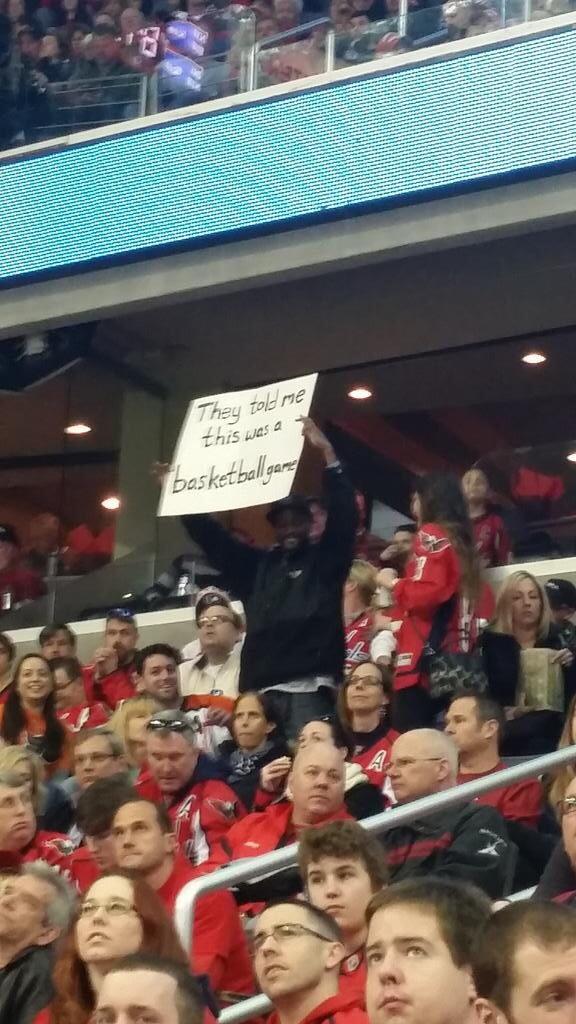 They told me
this was a
basketball game
A
A